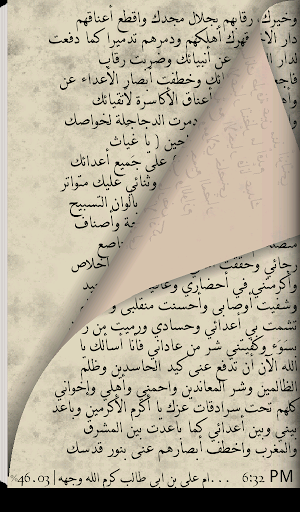 وخيرك رقابهم بجلال مجدك واقطع أعناقهم
دار الا قهرك أهلكهم ودمرهم تدميرا كما دفعت
كيد عن أنبيائك وضربت رقاب
ائك وخطفت أبصار الاعداء عن
أعناق الأكاسرة لأتقيائك
دمرت الدجاجلة لخواصك
يا غياث
على جميع أعدائك
وثنائي عليك متواتر
بألوان التسبيح
وأصناف
رجائي وحققت اخلاص
وأكرمتني في أحضاري
وشفيت أوصابي وأحسنت منقلبي و
تشمت بي أعدائي وحسادي ورميت من ر
بسوء وكفيتني شر من عاداني فأنا أسألك يا
الله الآن أن تدفع عني كيد الحاسدين وظلم
الظالمين وشر المعاندين واحمني وأهلي وإخواني
كلهم تحت سرادقات عزك يا أكرم الأكرمين وباعد
بيني وبين أعدائي كما باعدت بين المشرق
والمغرب واخطف أبصارهم عني بنور قدسك
6:32 PM ...ام علي بن ابي طالب كرم الله وجهه | 46.03%